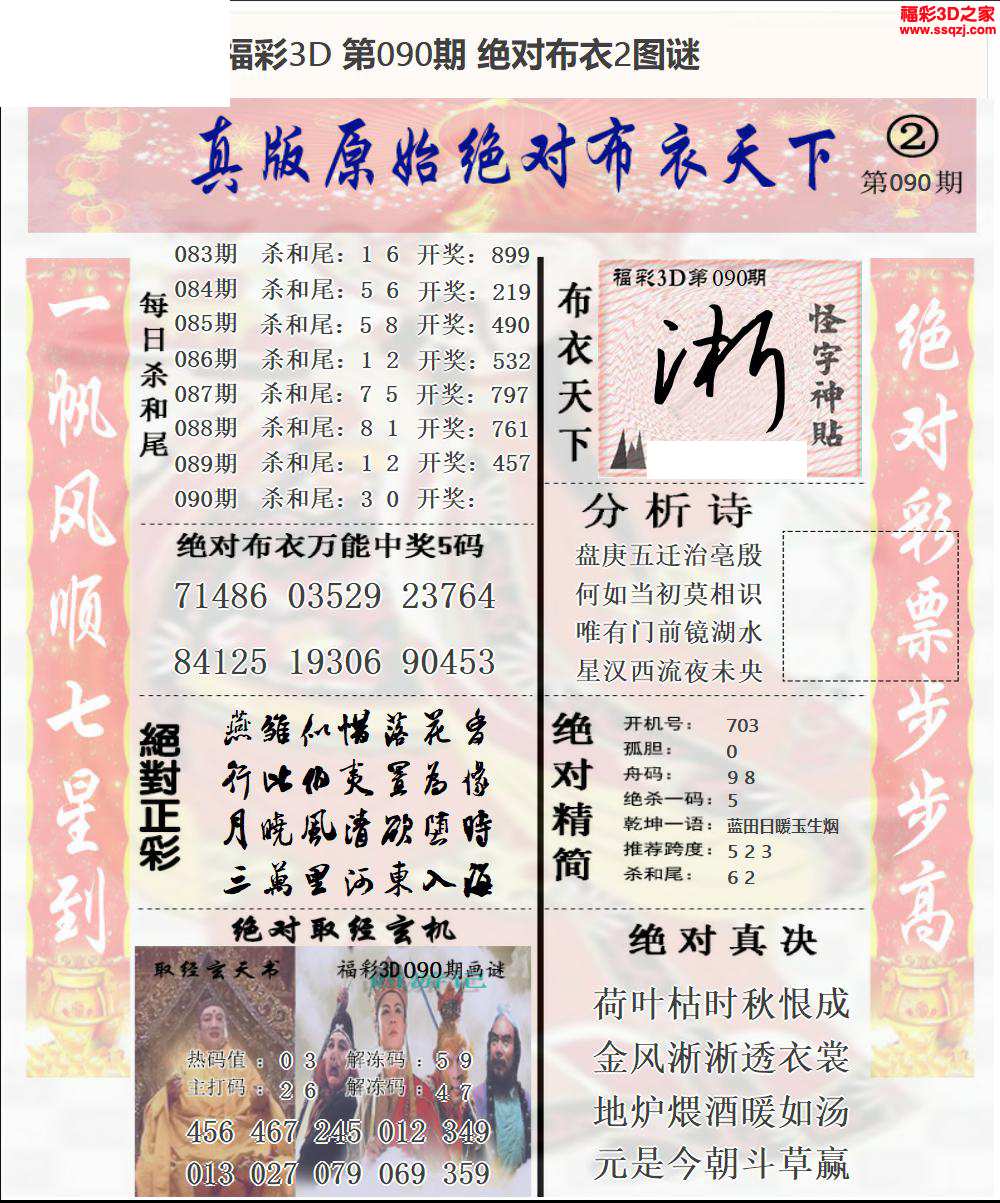 福彩3D之家
www.ssqzj.com
福彩3D 第090期 绝对布衣2图谜
真版原始绝对布衣天下
②
第090期
一帆风顺七星到
每日杀和尾
083期 杀和尾：1 6 开奖：899
084期 杀和尾：5 6 开奖：219
085期 杀和尾：5 8 开奖：490
086期 杀和尾：1 2 开奖：532
087期 杀和尾：7 5 开奖：797
088期 杀和尾：8 1 开奖：761
089期 杀和尾：1 2 开奖：457
090期 杀和尾：3 0 开奖：
绝对布衣万能中奖5码
71486 03529 23764
84125 19306 90453
絕對正彩
燕雏似惜落花香
行比伯夷置为像
月晓风清欲堕時
三萬里河東入海
绝对取经玄机
取经玄天书
福彩3D090期画谜
热码值：0 3 解冻码：5 9
主打码：2 6 解冻码：4 7
456 467 245 012 349
013 027 079 069 359
布衣天下
福彩3D第090期
淅
怪字神貼
分析诗
盘庚五迁治亳殷
何如当初莫相识
唯有门前镜湖水
星汉西流夜未央
绝对精简
开机号： 703
孤胆： 0
舟码： 9 8
绝杀一码： 5
乾坤一语：蓝田日暖玉生烟
推荐跨度： 5 2 3
杀和尾： 6 2
绝对真决
荷叶枯时秋恨成
金风淅淅透衣裳
地炉煨酒暖如汤
元是今朝斗草赢
绝对彩票步步高